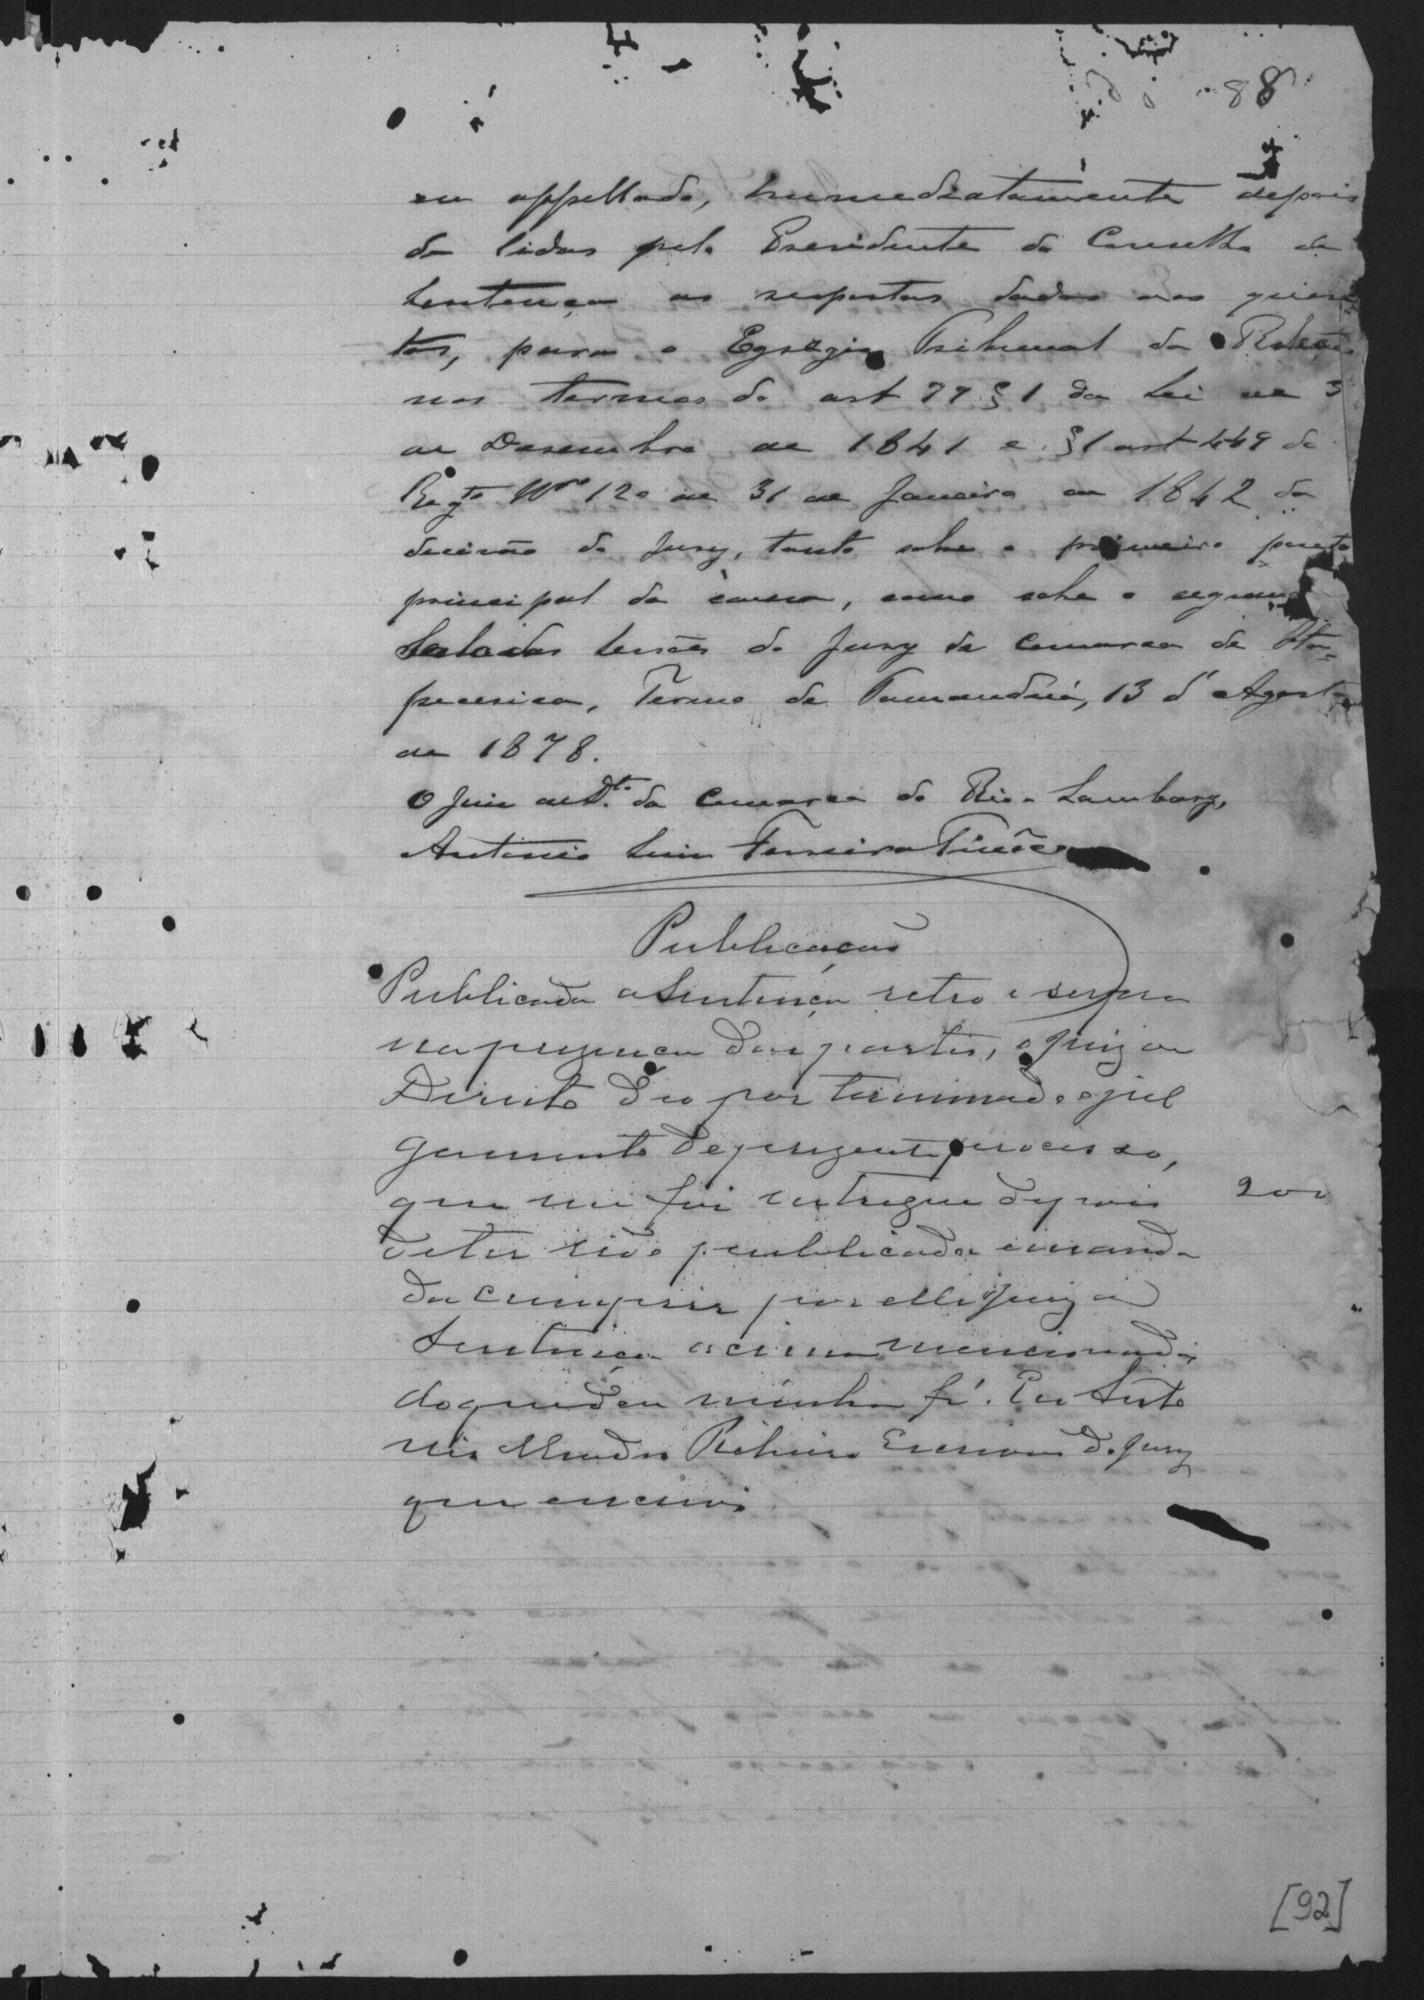 88
eu appellado, immediatamente depois
de lidas pelo Presidente do Conselho de
Sentença as respostas dadas aos quesi
tos, para o Egregio Tribunal da Relação
nos termos do art 79 § 1 da Lei de 3
de Desembro de 1841 e § 1 art 449 do
Regto Nro 120 de 31 de Janeiro de 1842 da
decisão do Jury, tanto sobre o primeiro ponto
principal da causa, como sobre o segundo
Sala das sessões do Jury da Comarca de Ita-
pecerica, Termo de Tamanduá, 13 d'Agosto
de 1878.
O Juiz de Dto da Comarca do Rio
Antonio Luiz Ferreira Tinôco
Publicação
Publicada a Sentença retro e supra
na prezença das partes, o Juiz de
Direito deo por terminado o jul
gamento do prezente processo,
que me foi entregue depois 200
de ter sido publicada e manda
da cumprir por elle Juiz a
Sentença acima mencionada
do que dou minha fé. Eu Anto
nio Ribeiro Escrivão do Jury
que escrevi
[92]